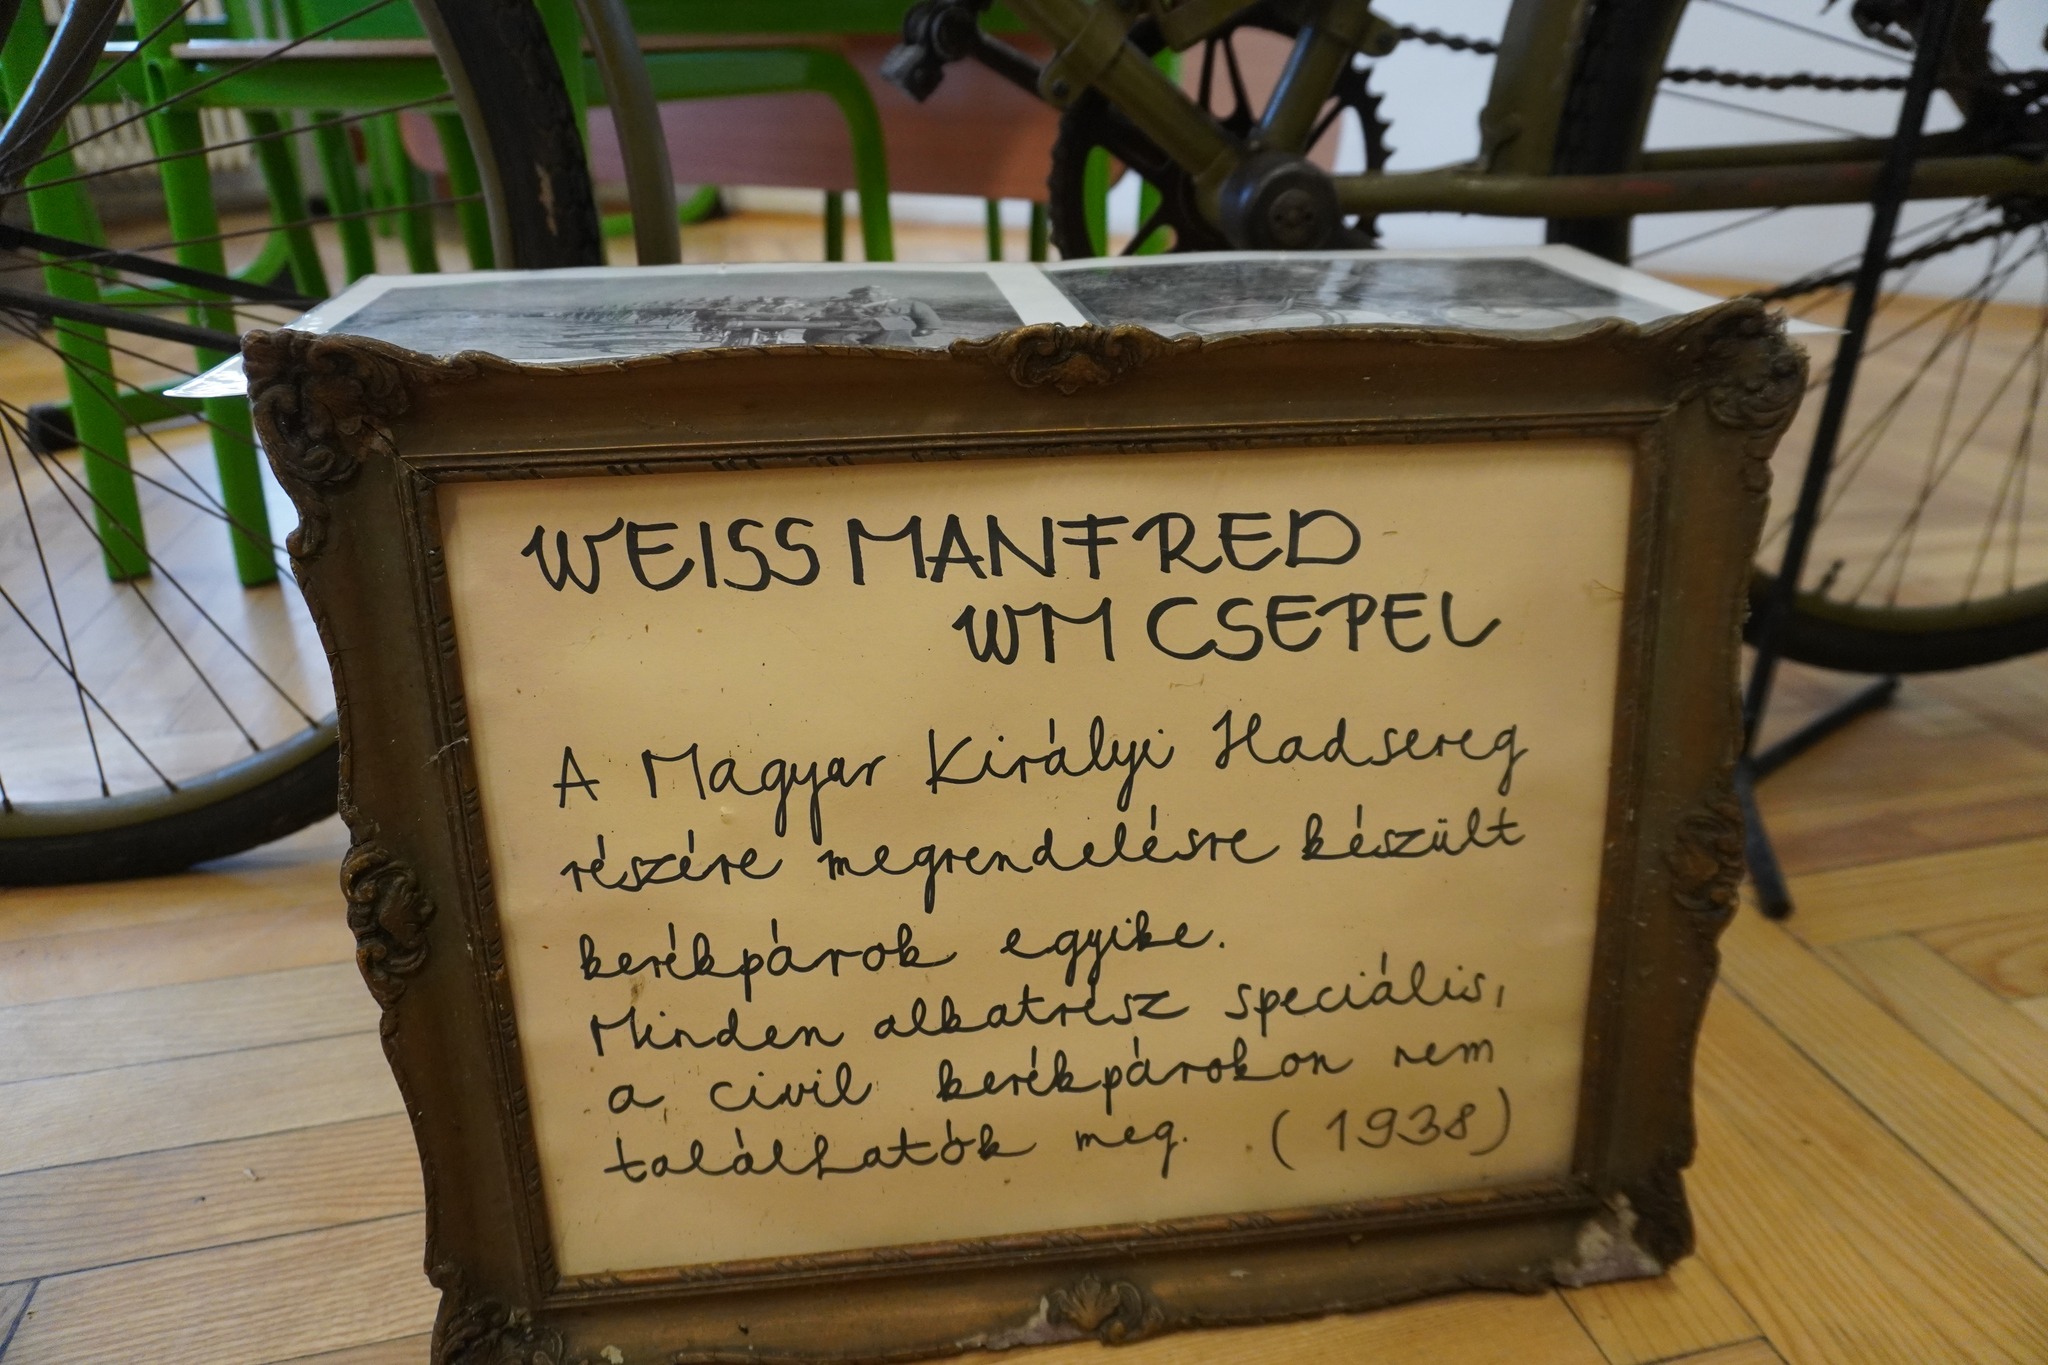 WEISS MANFRED
WM CSEPEL
A Magyar Királyi Hadsereg
részére megrendelésre készült
kerékpárok egyike.
Minden alkatrész speciális,
a civil kerékpárokon nem
találhatók meg. (1938)